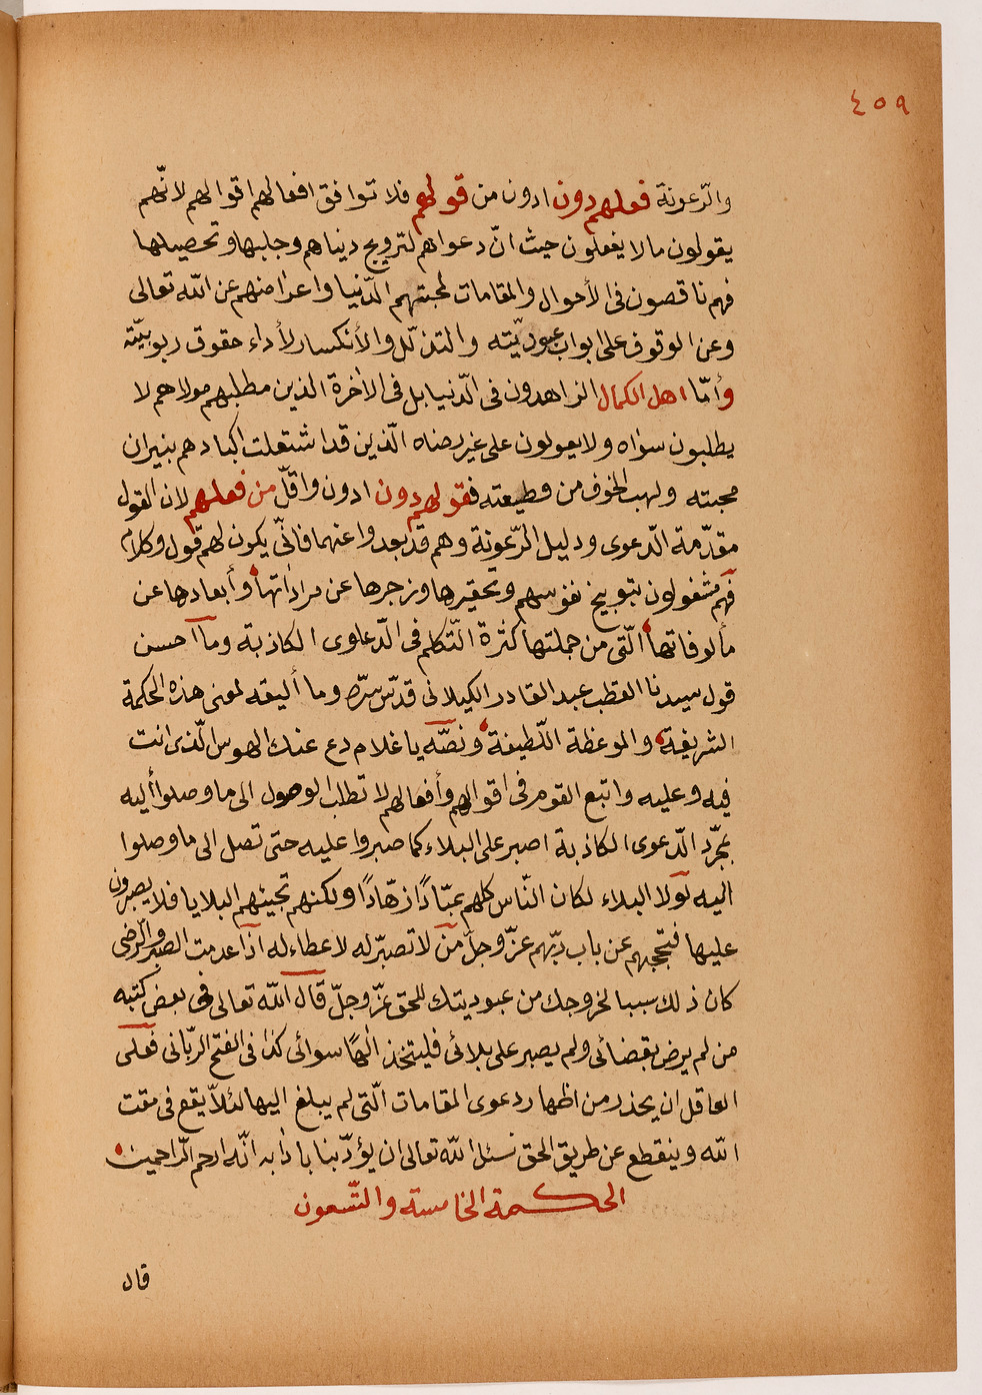 ٤٥٩
والرّعونة فعلهم دون ادون من قولهم فلا توافق افعالهم اقوالهم لانّهم
يقولون مالا يفعلون حيث انّ دعواهم لترويج دنياهم وجلبها وتحصيلها
فهم ناقصون فى الأحوال والمقامات لمحبتهم الدّنيا واعراضهم عن الله تعالى
وعن الوقوف على ابواب عبوديّته والتذلّل والأنكسار لأداء حقوق ربوبيّته
وأمّا اهل الكمال الزاهدون فى الدّنيا بل فى الاخرة الذين مطلبهم مولاهم لا
يطلبون سواه ولا يعولون على غير رضاه الّذين قد اشتعلت اكبادهم بنيران
محبته ولهب الخوف من قطيعته فقولهم دون ادون واقلّ من فعلهم لان القول
مقدّمة الدّعوى ودليل الرّعونة وهم قد بعدوا عنهما فانّى يكون لهم قول وكلام
فهم مشغولون بتوبيخ نفوسهم وتحقيرها وزجرها عن مراداتها وأبعادها عن
مألوفاتها الّتى من جملتها كثرة التّكلم فى الدّعاوى الكاذبة وما احسن
قول سيدنا القطب عبد القادر الكيلانى قدّس سرّه وما أليقه لمعنى هذه الحكمة
الشريفة والموعظة اللّطيفة ونصّه يا غلام دع عنك الهوس الّذى انت
فيه وعليه واتبع القوم فى اقوالهم وأفعالهم لا تطلب الوصول الى ما وصلوا أليه
بمجرّد الدّعوى الكاذبة اصبر على البلاء كما صبروا عليه حتى تصل الى ما وصلوا
اليه لولا البلاء لكان النّاس كلهم عبّادًا زهّادًا ولكنهم تجيئهم البلايا فلا يصبرون
عليها فتحجبهم عن باب ربّهم عزّ وجلّ من لا تصبّر له لا عطاء له اذا عدمت الصبر والرّضى
كان ذلك سببا لخروجك من عبوديتك للحق عزّ وجلّ قال الله تعالى فى بعض كتبه
من لم يرض بقضائى ولم يصبر على بلائى فليتخذ الهًا سوائى كذا فى الفتح الربّانى فعلى
العاقل ان يحذر من اظهار دعوى المقامات الّتى لم يبلغ اليها لئلاّ يقع فى مقت
الله وينقطع عن طريق الحق نسئل الله تعالى ان يؤدّبنا بادابه انّه ارحم الرّاحمين
الحكمة الخامسة والتّسعون
قال